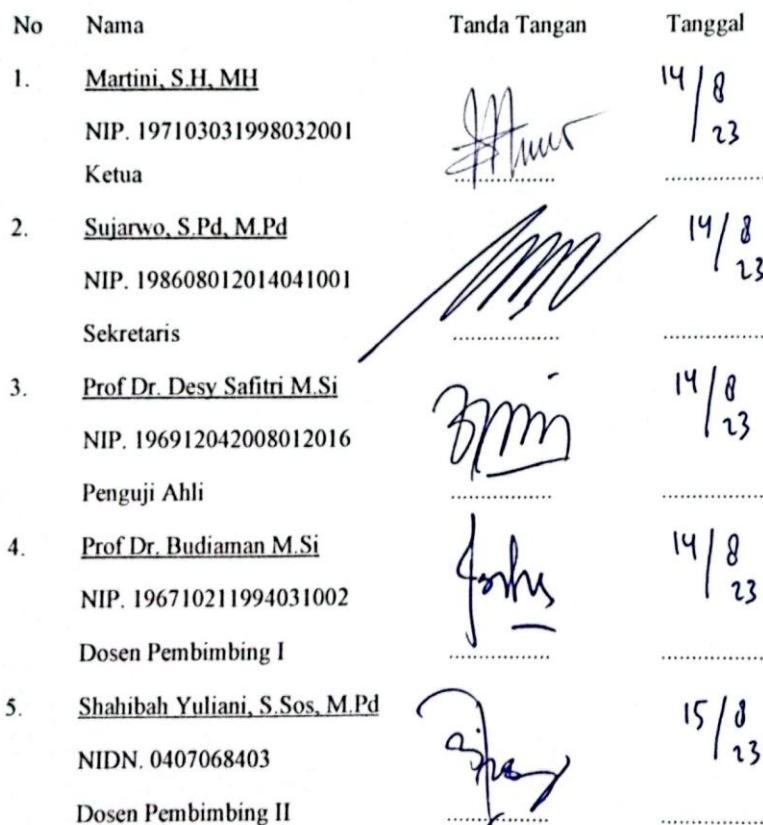 No Nama Tanda Tangan Tanggal
1. Martini, S.H, MH 14/8
NIP. 197103031998032001 23
Ketua .................. ..................
2. Sujarwo, S.Pd, M.Pd 14/8
NIP. 198608012014041001 23
Sekretaris .................. ..................
3. Prof Dr. Desy Safitri M.Si 14/8
NIP. 196912042008012016 23
Penguji Ahli .................. ..................
4. Prof Dr. Budiaman M.Si 14/8
NIP. 196710211994031002 23
Dosen Pembimbing I .................. ..................
5. Shahibah Yuliani, S.Sos, M.Pd 15/8
NIDN. 0407068403 23
Dosen Pembimbing II .................. ..................